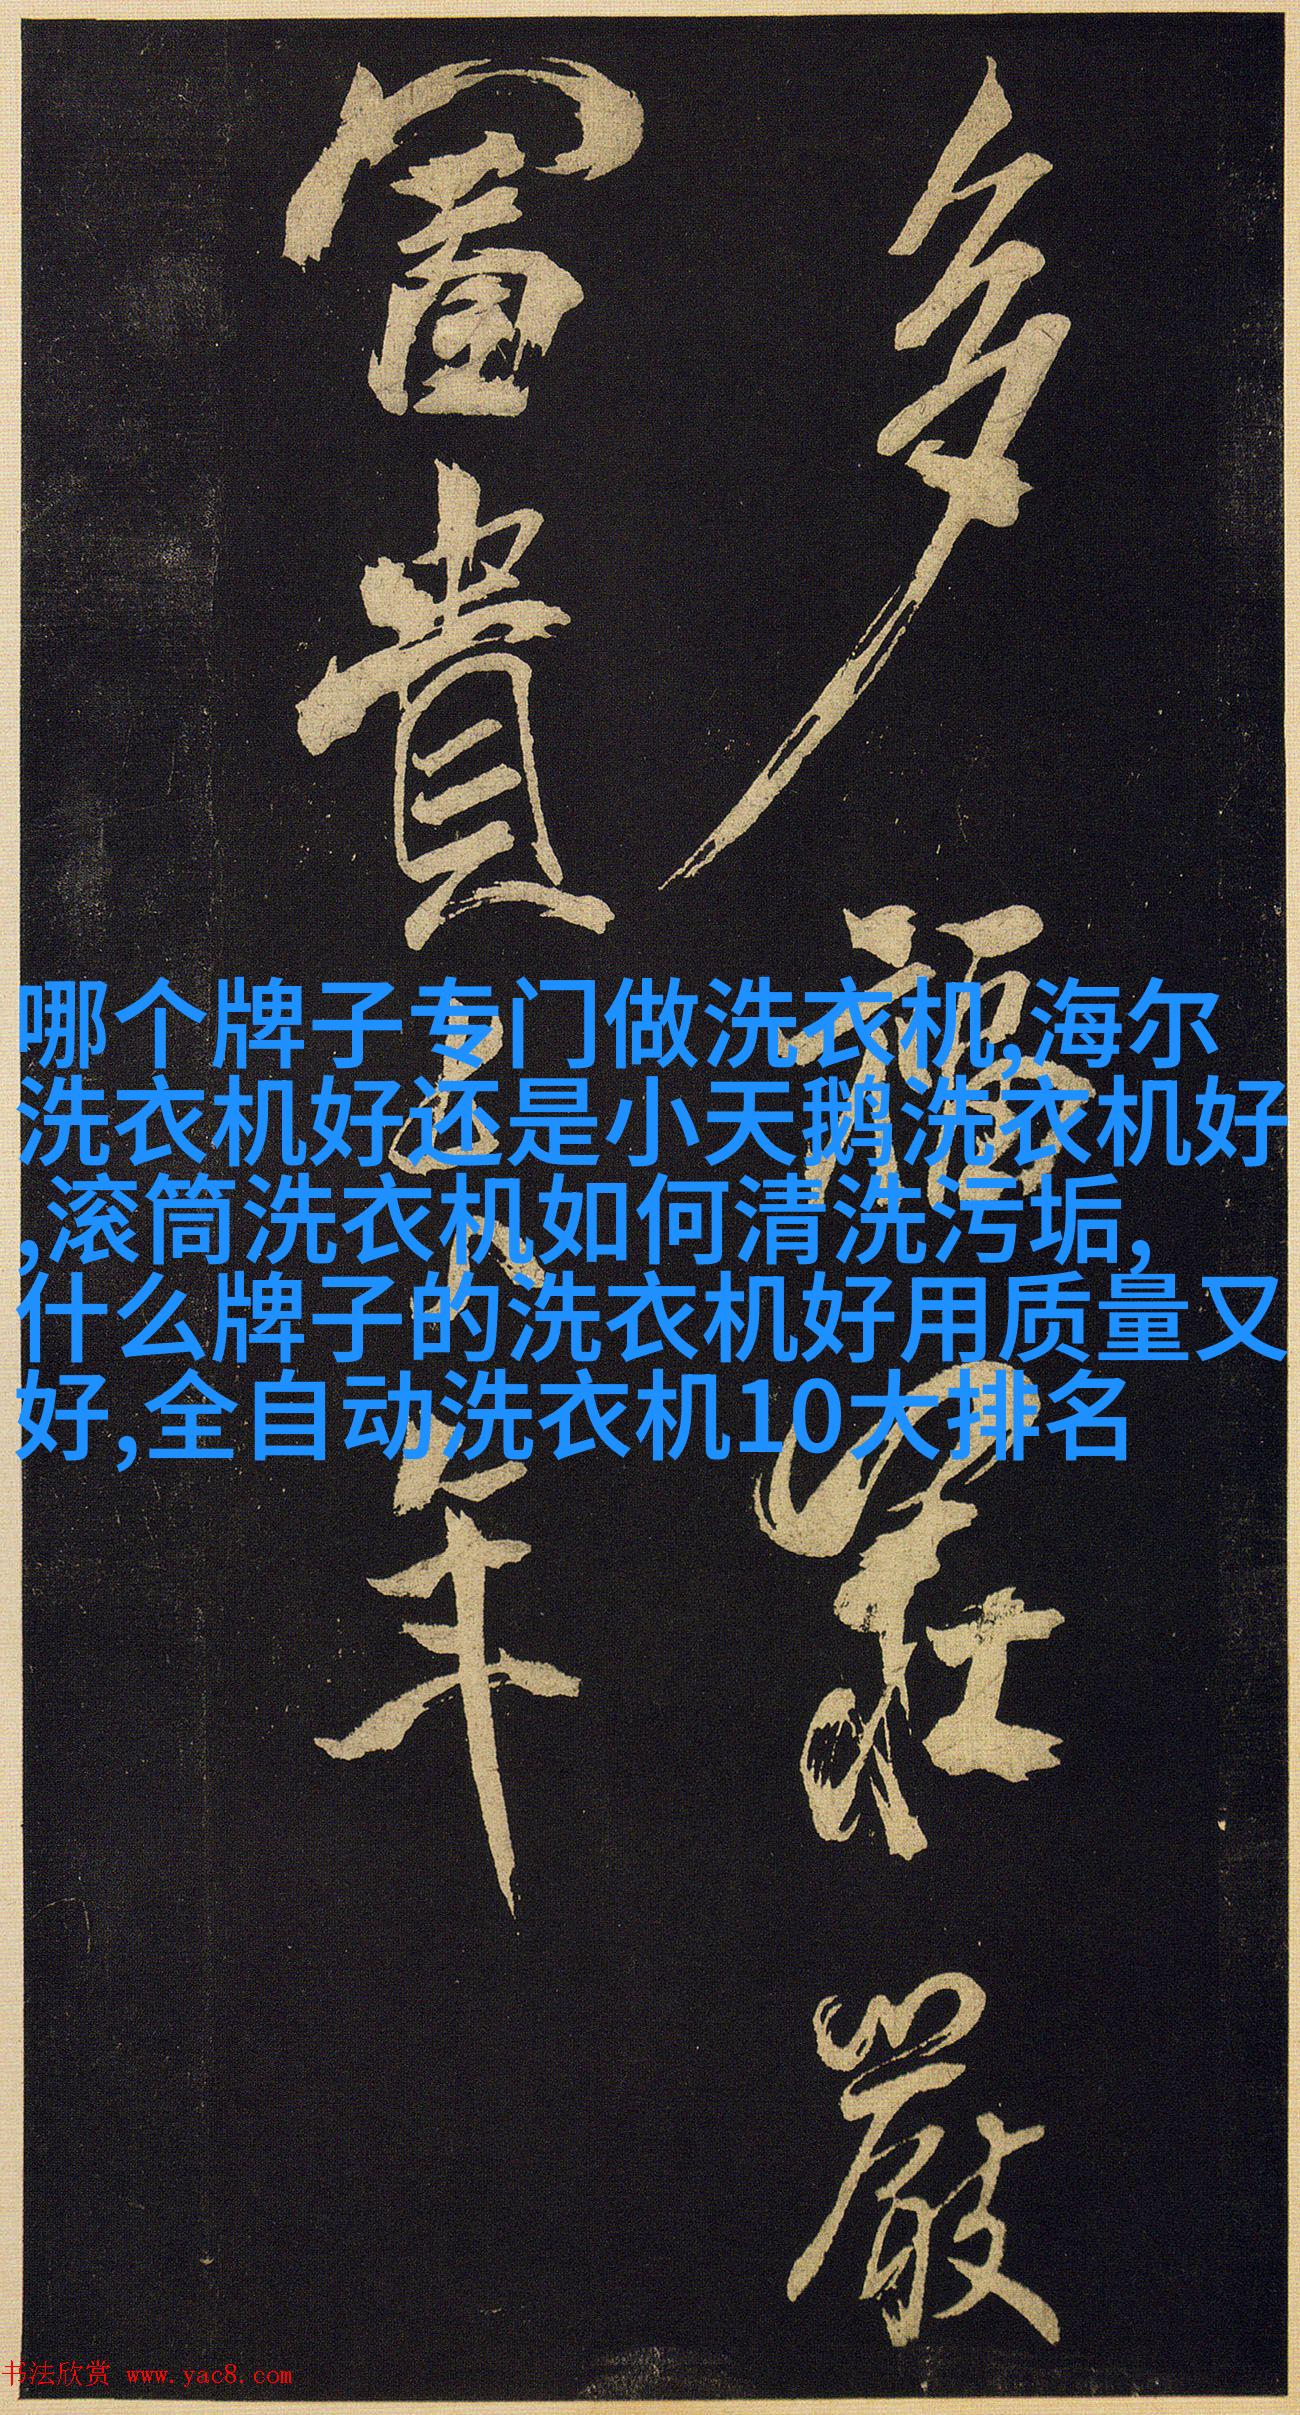 多福莊嚴
富貴年
哪个牌子专门做洗衣机,海尔
洗衣机好还是小天鹅洗衣机好
,滚筒洗衣机如何清洗污垢,
什么牌子的洗衣机好用质量又
好,全自动洗衣机10大排名
书法欣赏 www.yac8.com